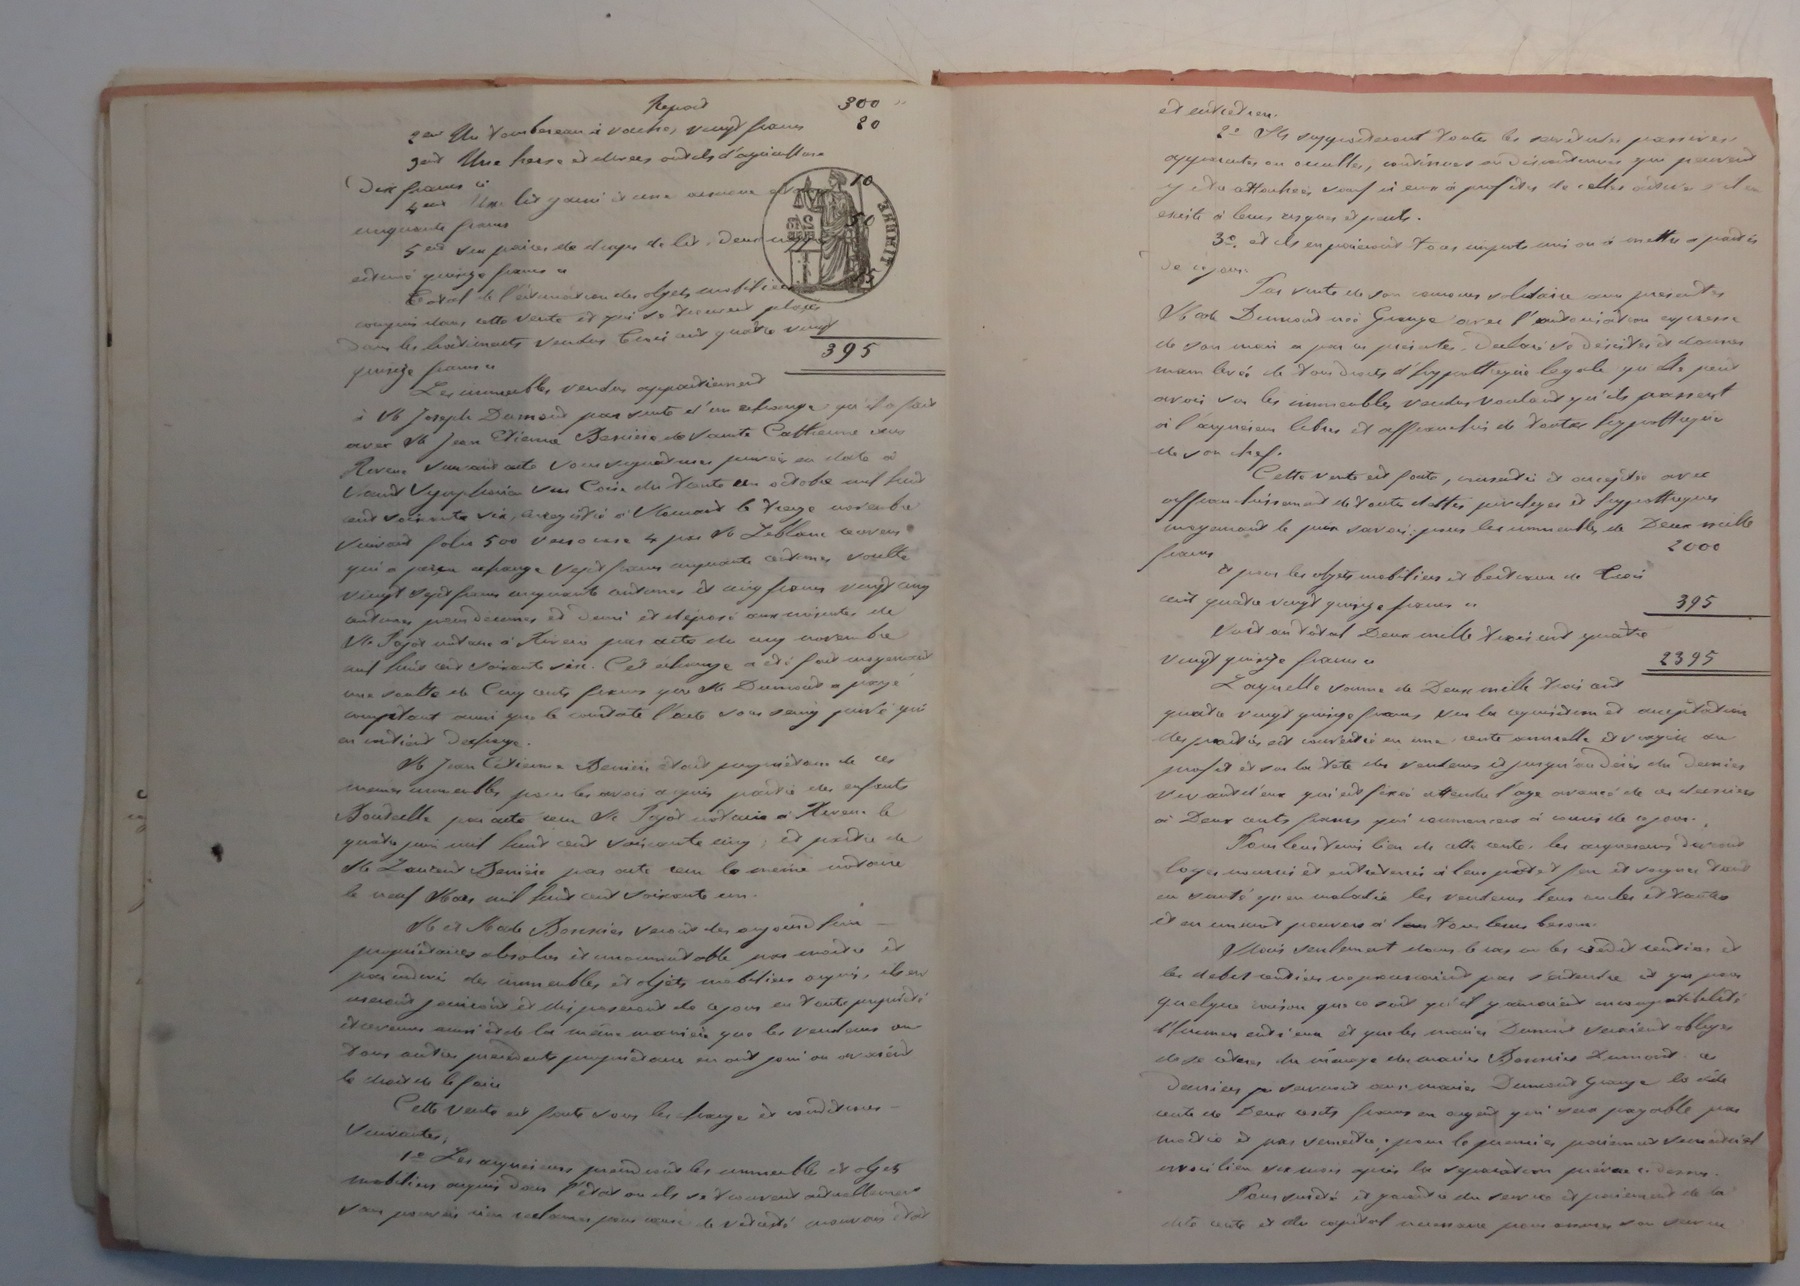 Report 300 "
2ent Un tombereau à vaches, vingt francs 20
3ent Une herse et divers outils d'agriculture
Dix francs ci 10
4ent Un lit garni et une armoire
cinquante francs 50
5ent six paires de draps de lit. Deux
estimé quinze francs ci 15
2F5
Total de l'estimation des objets mobiliers
compris dans cette vente et qui se trouvent placés
Dans les bâtiments vendus Trois cent quatre vingt
quinze francs ci 395
Les immeubles vendus appartiennent
à Mr Joseph Dumond par suite d'un échange qu'il a fait
avec Mr Jean Etienne Besnière de Sainte Catherine sur
Riverie suivant acte sous signatures privées en date à
Saint Symphorien sur Coise du trente un octobre mil huit
cent soixante six, enregistré à Mornant le treize novembre
suivant folio 500 verso case 4 par Mr Leblanc receveur
qui a perçu échange sept francs cinquante centimes soulte
vingt sept francs cinquante centimes et cinq francs vingt cinq
centimes pour décimes et demi et déposé aux minutes de
Me Pajot notaire à Riverie par acte du cinq novembre
mil huit cent soixante six. Cet échange a été fait moyennant
une soulte de Cinq cents francs que Mr Dumond a payé
comptant ainsi que le constate l'acte sous seing privé qui
en contient décharge.
Mr Jean Etienne Besnière était propriétaire de ces
mêmes immeubles pour les avoir acquis partie des enfants
par acte reçu Me Pajot notaire à Riverie le
quatre juin mil huit cent soixante cinq; et partie de
Mr Laurent Besnière par acte reçu le même notaire
le neuf Mars mil huit cent soixante un.
Mr et Made Bonnier seront dès aujourd'hui
propriétaires absolus et incommutable par moitié et
par indivis des immeubles et objets mobiliers acquis, ils en
useront jouiront et disposeront de ce jour en toute propriété
et revenus ainsi et de la même manière que les vendeurs ou
tous autres précédents propriétaires en ont joui ou avaient
le droit de le faire
Cette vente est faite sous les charges et conditions
suivantes;
1o Les acquéreurs prendront les immeubles et objets
mobiliers acquis dans l'état où ils se trouvent actuellement
sans pouvoir rien réclamer pour cause de vétusté mauvais état
et entretien.
2o Ils supporteront toutes les servitudes passives
apparentes ou occultes, continues ou discontinues qui peuvent
y être attachées, sauf à eux à profiter de celles actives s'il en
existe à leurs risques et périls.
3o et ils en paieront tous impôts mis ou à mettre à partir
de ce jour.
Par suite de son concours solidaire aux présentes
Made Dumond née Grange avec l'autorisation expresse
de son mari a par ces présentes, déclaré se désister et donner
main levée de tous droits d'hypothèque légale qu'elle peut
avoir sur les immeubles vendus voulant qu'ils passent
à l'acquéreur libres et affranchis de toutes hypothèques
de son chef.
Cette vente est faite, consentie et acceptée avec
affranchissement de toute dettes privilèges et hypothèques
moyennant le prix savoir: pour les immeubles de Deux mille
francs 2000
et pour les objets mobiliers et bestiaux de Trois
cent quatre vingt quinze francs ci 395
Soit au total Deux mille trois cent quatre
vingt quinze francs ci 2395
Laquelle somme de Deux mille trois cent
quatre vingt quinze francs sur la réquisition et acceptation
des parties est convertie en une rente annuelle et viagère au
profit et sur la tête des vendeurs et jusqu'au décès du dernier
vivant d'eux qui est fixée attendu l'âge avancé de ces derniers
à Deux cents francs qui commencera à courir de ce jour.
Pour leur tenir lieu de cette rente, les acquéreurs devront
loger nourrir et entretenir à leur pot et feu et soigner tant
en santé qu'en maladie les vendeurs leurs oncles et tantes
et en un mot pourvoir à tous leurs besoins.
Mais seulement dans le cas où les crédit rentiers et
les débit rentiers ne pourraient pas s'entendre et que pour
quelque raison que ce soit qu'il y auraient incompatibilité
d'humeur entr'eux et que les mariés Dumond seraient obligés
de se retirer du ménage des mariés Bonnier Dumond. ces
derniers serviront aux mariés Dumond Grange la dite
rente de Deux cents francs en argent qui sera payable par
moitié et par semestre; pour le premier paiement semestriel
avoir lieu six mois après la séparation prévue ci dessus.
Pour sureté et garantie du service et paiement de la
dite rente et du capital nécessaire pour assurer son service